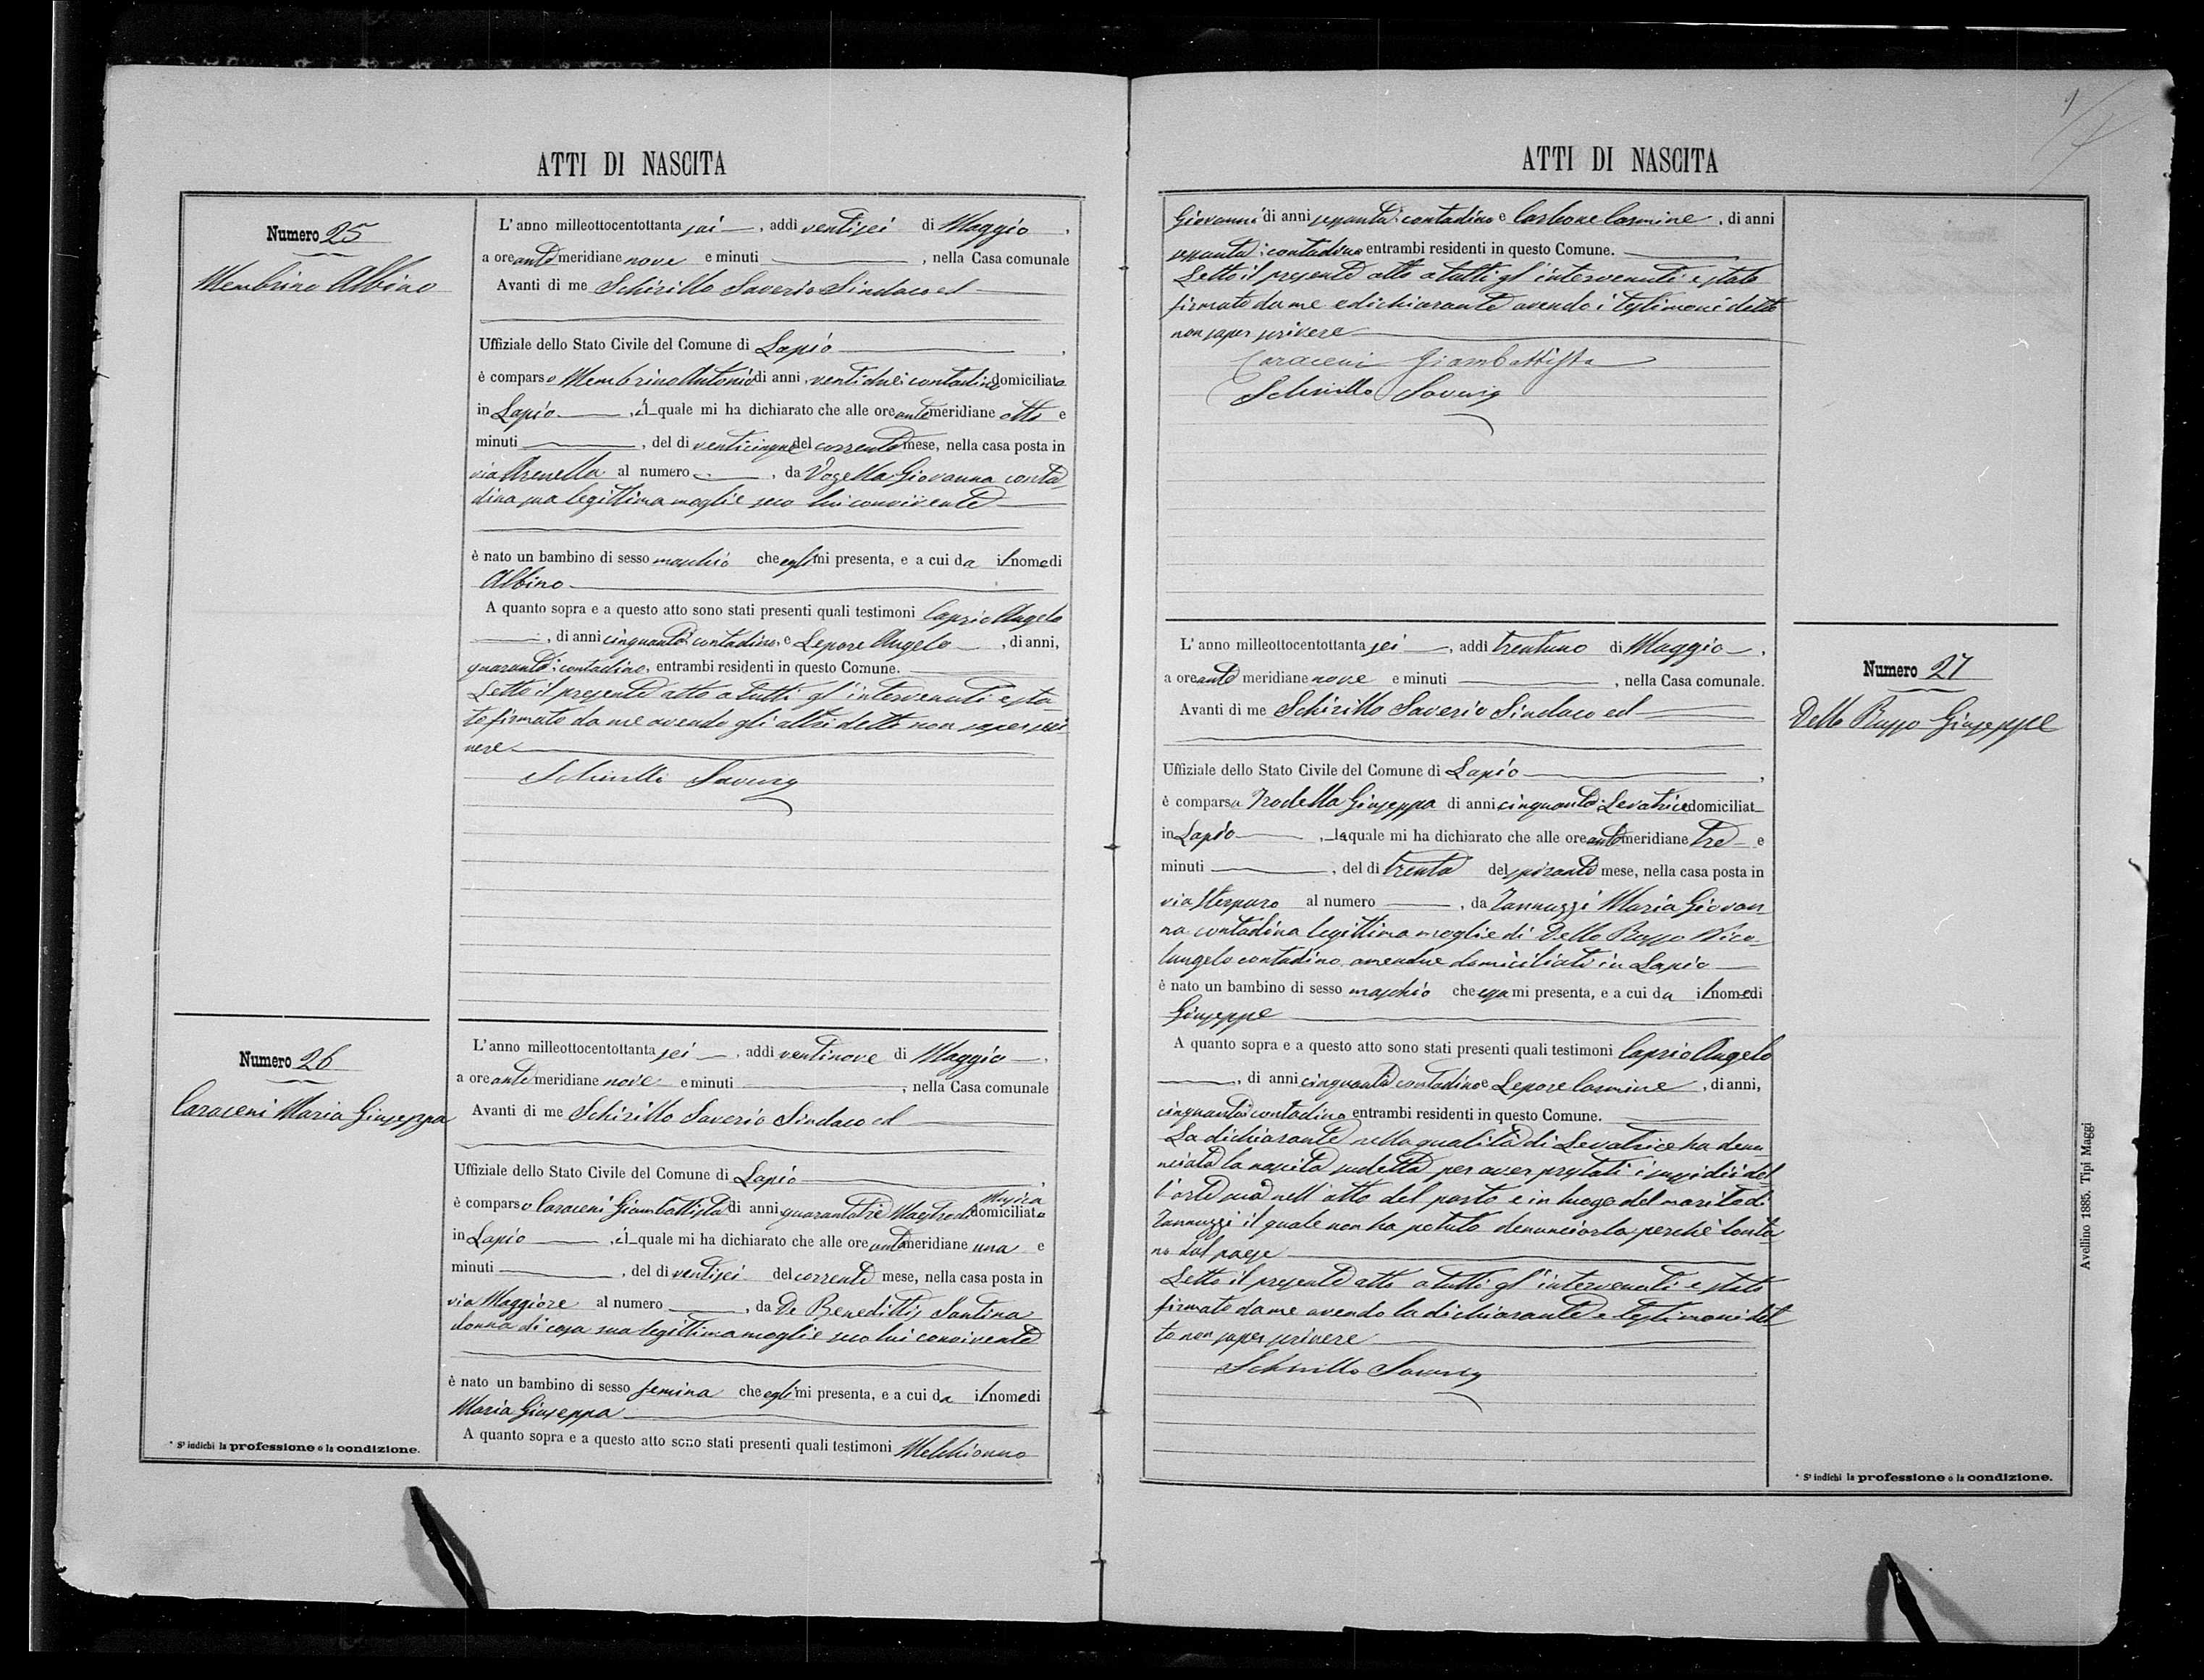 ATTI DI NASCITA
Numero 25
Membrino Albino
L'anno milleottocentottanta sei, addi ventisei di Maggio,
a ore ante meridiane nove e minuti, nella Casa comunale
Avanti di me Schirillo Saverio Sindaco ed
Uffiziale dello Stato Civile del Comune di Lapio,
è comparso Membrino Antonio di anni ventidue contadino domiciliato
in Lapio, il quale mi ha dichiarato che alle ore ante meridiane otto e
minuti, del dì venticinque del corrente mese, nella casa posta in
via Arenella al numero, da Vozella Giovanna conta
dina sua legittima moglie seco lui convivente
è nato un bambino di sesso maschio che egli mi presenta, e a cui da il nome di
Albino
A quanto sopra e a questo atto sono stati presenti quali testimoni Caprio Angelo
, di anni cinquanta contadino, e Lepore Angelo, di anni,
quaranta contadino, entrambi residenti in questo Comune.
Letto il presente atto a tutti gl'intervenuti e sta
to firmato da me avendo gli altri detto non saper scri
vere
Schirillo Saverio
Numero 26
Caraceni Maria Giuseppa
L'anno milleottocentottanta sei, addi ventinove di Maggio,
a ore ante meridiane nove e minuti, nella Casa comunale
Avanti di me Schirillo Saverio Sindaco ed
Uffiziale dello Stato Civile del Comune di Lapio,
è comparso Caraceni Giambattista di anni quarantatrè Maestro di musica domiciliato
in Lapio, il quale mi ha dichiarato che alle ore ante meridiane una e
minuti, del dì ventisei del corrente mese, nella casa posta in
via Maggiore al numero, da De Benedittis Santina
donna di casa sua legittima moglie seco lui convivente
è nato un bambino di sesso femina che egli mi presenta, e a cui da il nome di
Maria Giuseppa
A quanto sopra e a questo atto sono stati presenti quali testimoni Melchionno
* Si indichi la professione o la condizione.
ATTI DI NASCITA
Giovanni di anni sessanta contadino e Carbone Carmine, di anni
sessanta contadino entrambi residenti in questo Comune.
Letto il presente atto a tutti gl'intervenuti e stato
firmato da me e dichiarante avendo i testimoni detto
non saper scrivere
Caraceni Giambattista
Schirillo Saverio
Numero 27
Dello Russo Giuseppe
L'anno milleottocentottanta sei, addi trentuno di Maggio,
a ore ante meridiane nove e minuti, nella Casa comunale.
Avanti di me Schirillo Saverio Sindaco ed
Uffiziale dello Stato Civile del Comune di Lapio,
è comparsa Trodella Giuseppa di anni cinquanta Levatrice domiciliat
in Lapio, la quale mi ha dichiarato che alle ore ante meridiane tre e
minuti, del dì trenta del spirante mese, nella casa posta in
via Sterparo al numero, da Iannuzzi Maria Giovan
na contadina legittima moglie di Dello Russo Nico
langelo contadino amendue domiciliati in Lapio
è nato un bambino di sesso maschio che essa mi presenta, e a cui da il nome di
Giuseppe
A quanto sopra e a questo atto sono stati presenti quali testimoni Caprio Angelo
, di anni cinquanta contadino e Lepore Carmine, di anni,
cinquanta contadino entrambi residenti in questo Comune.
La dichiarante nella qualità di Levatrice ha denu
nciata la nascita sudetta per aver prestati i sussidii del
l'arte sua nell'atto del parto e in luogo del marito di
Iannuzzi il quale non ha potuto denunciarla perchè lonta
no dal paese
Letto il presente atto a tutti gl'intervenuti e stato
firmato da me avendo la dichiarante e testimoni det
to non saper scrivere
Schirillo Saverio
* Si indichi la professione o la condizione.
Avellino 1885. Tipi Maggi